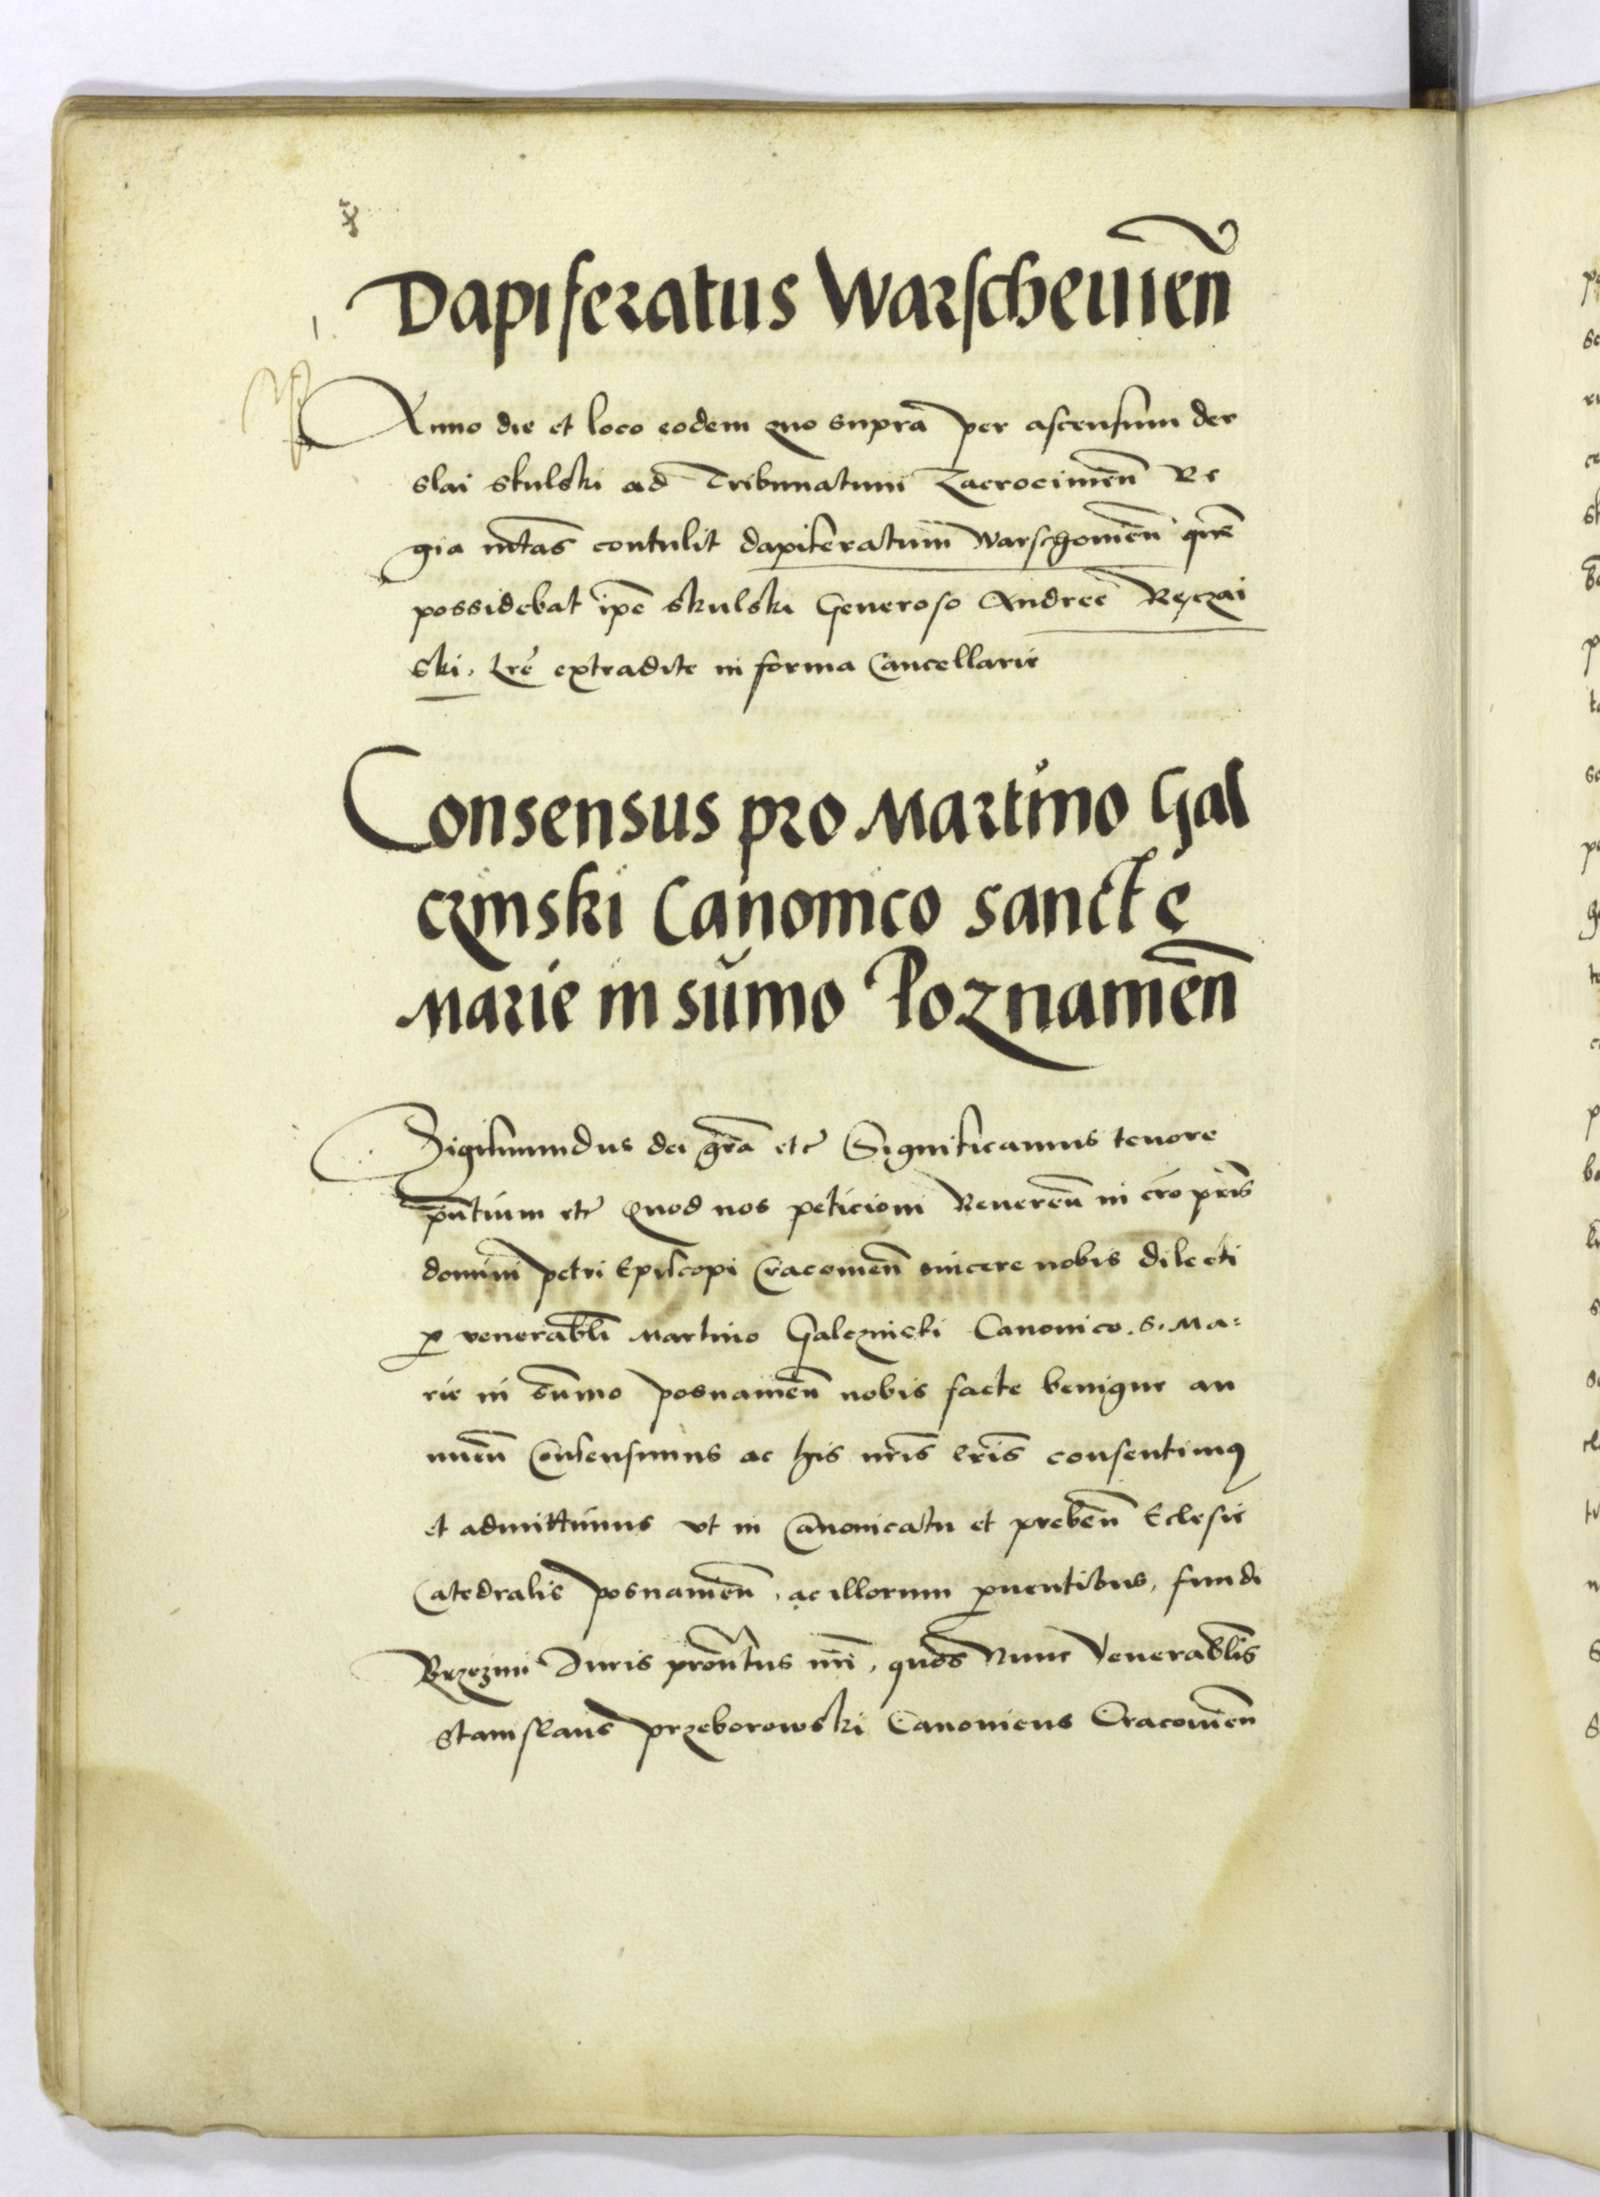 Dapiferatus Warscheuien̄
Anno die et loco eodem quo supra per ascensum der
slai Skulski ad Tribunatum Zacrocimen̄ Re
gia mtas contulit dapiferatum Warschouien̄ quē
possidebat ipē Skulski Generoso Andree Ręczai
ski. Lrē extradite in forma Cancellarie
Consensus pro Martino Gal
czinski Canonico sancte
Marie in sūmo Poznanien̄
Sigismundus dei grā etc Significamus tenore
pn̄tium etc Quod nos peticioni Reueren̄ in cro pris
domini Petri Episcopi Cracouien̄ sincere nobis dilecti
p venerabli Martino Galcznski Canonico. S. Ma=
rie in sūmo posnanien̄ nobis facte benigne an
nuen̄ Consensimus ac his nris lris consentimus
et admittimus vt in Canonicatu et preben̄ Eclesie
Catedralis posnanien̄, ac illorum puentibus, fundi
Brzezini Juris pronatus nri, quos Nunc Venerablis
Stanislaus Przeborowski Canonicus Cracouien̄